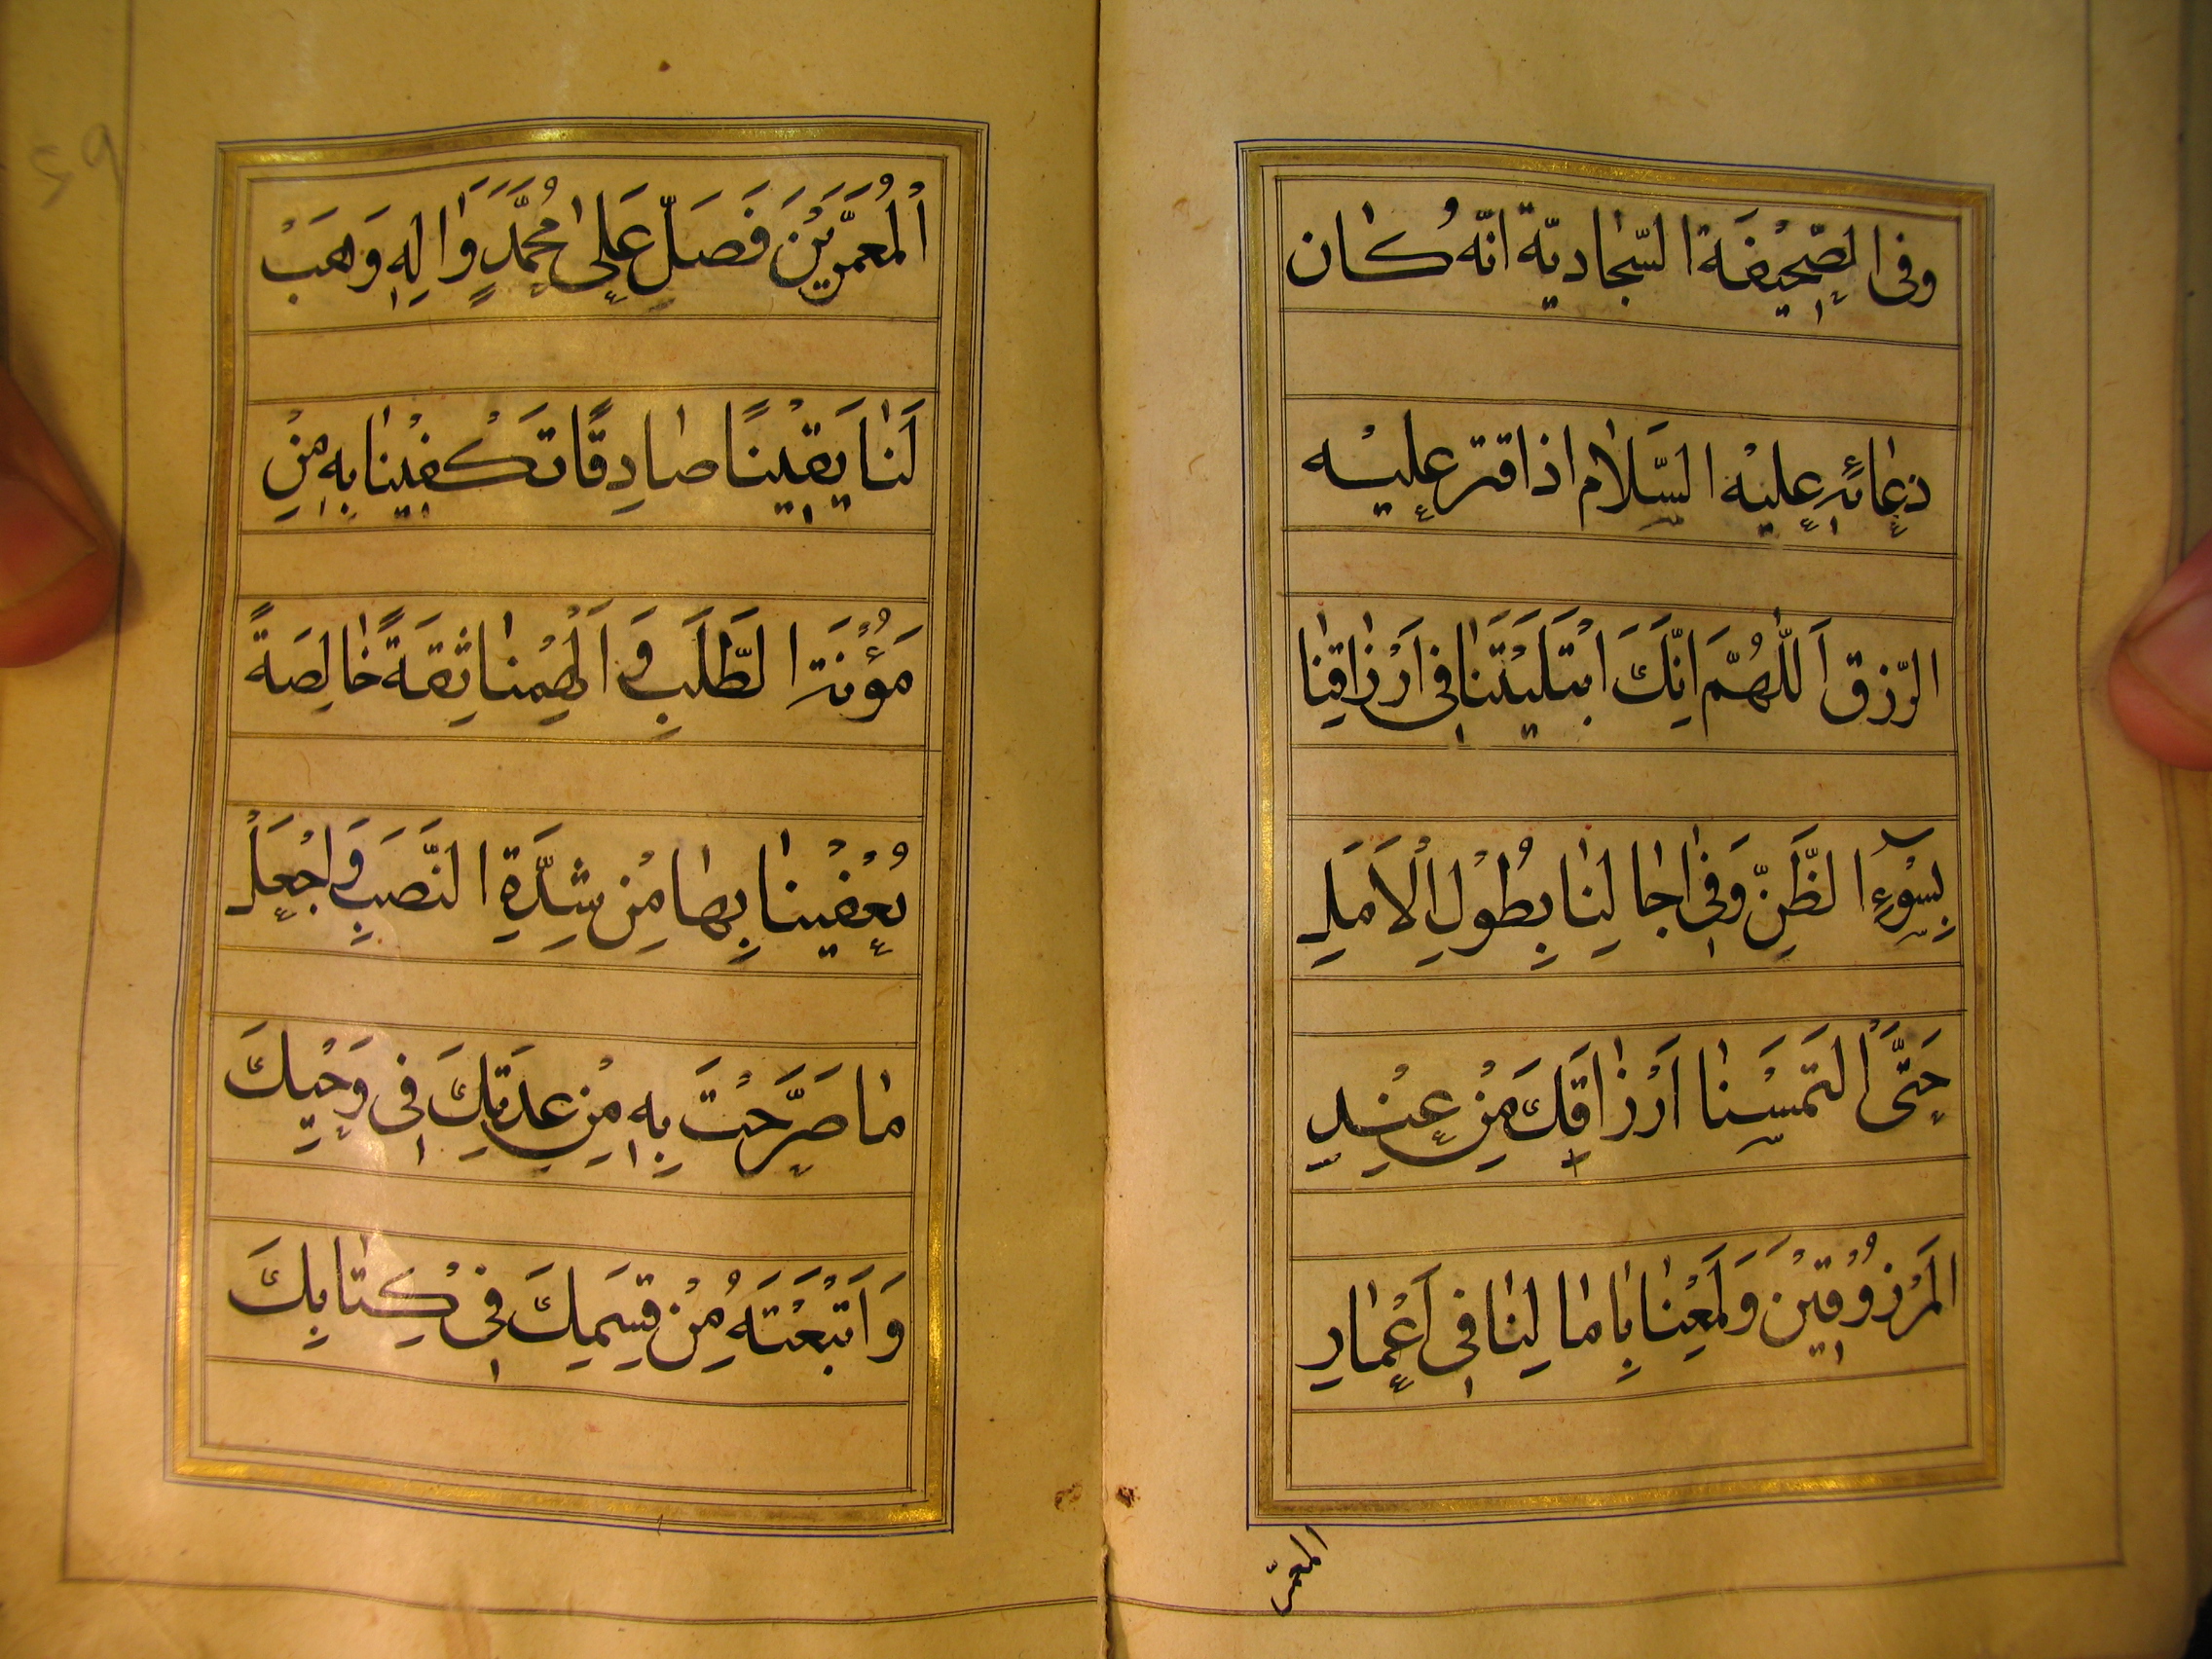 وفی الصّحِیْفَة السّجادیّة انّه كُان
دعائِه عليْه السَّلام اذا قتر عليْه
الرّزق اَللّٰهُمَّ اِنَّكَ ابْتَلَيْتَنٰا فِی اَرْزٰاقِنٰا
بِسُوْٓءِ الظَّنِّ وَفِی اٰجٰالِنٰا بِطُوْلِ الْاَمَلِ
حَتَّی الْتَمَسْنٰا اَرْزٰاقَكَ مِنْ عِنْدِ
الْمَرْزُوْقِیْنَ وَطَمِعْنٰا بِاٰمٰالِنٰا فِی اَعْمٰارِ
المعمّر
الْمُعَمَّرِیْنَ فَصَلِّ عَلٰی مُحَمَّدٍ وَاٰلِهِ وَهَبْ
لَنٰا یَقِیْنًا صٰادِقًا تَكْفِیْنٰا بِهِ مِنْ
مَؤُنَةِ الطَّلَبِ وَ اَلْهِمْنٰا ثِقَةً خٰالِصَةً
تُعْفِیْنٰا بِهٰا مِنْ شِدَّةِ النَّصَبِ وَاجْعَلْ
مٰا صَرَّحْتَ بِهِ مِنْ عِدَتِكَ فِی وَحْیِكَ
وَ اَتْبَعْتَهُ مِنْ قِسَمِكَ فِی كِتٰابِكَ